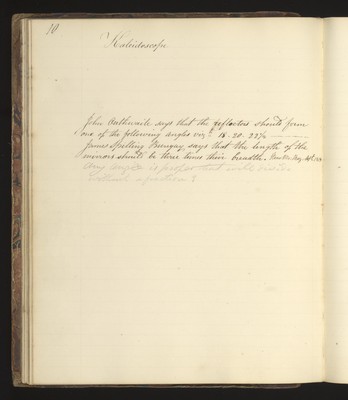 10
Kaleidoscope.
John Outhwaite says that the reflectors should form
one of the following angles viz. 18. 20. 22½
James Spilling Bungay says that the length of the
mirrors should be three times their breadth.
Any angle is proper that will divide
without a fraction?